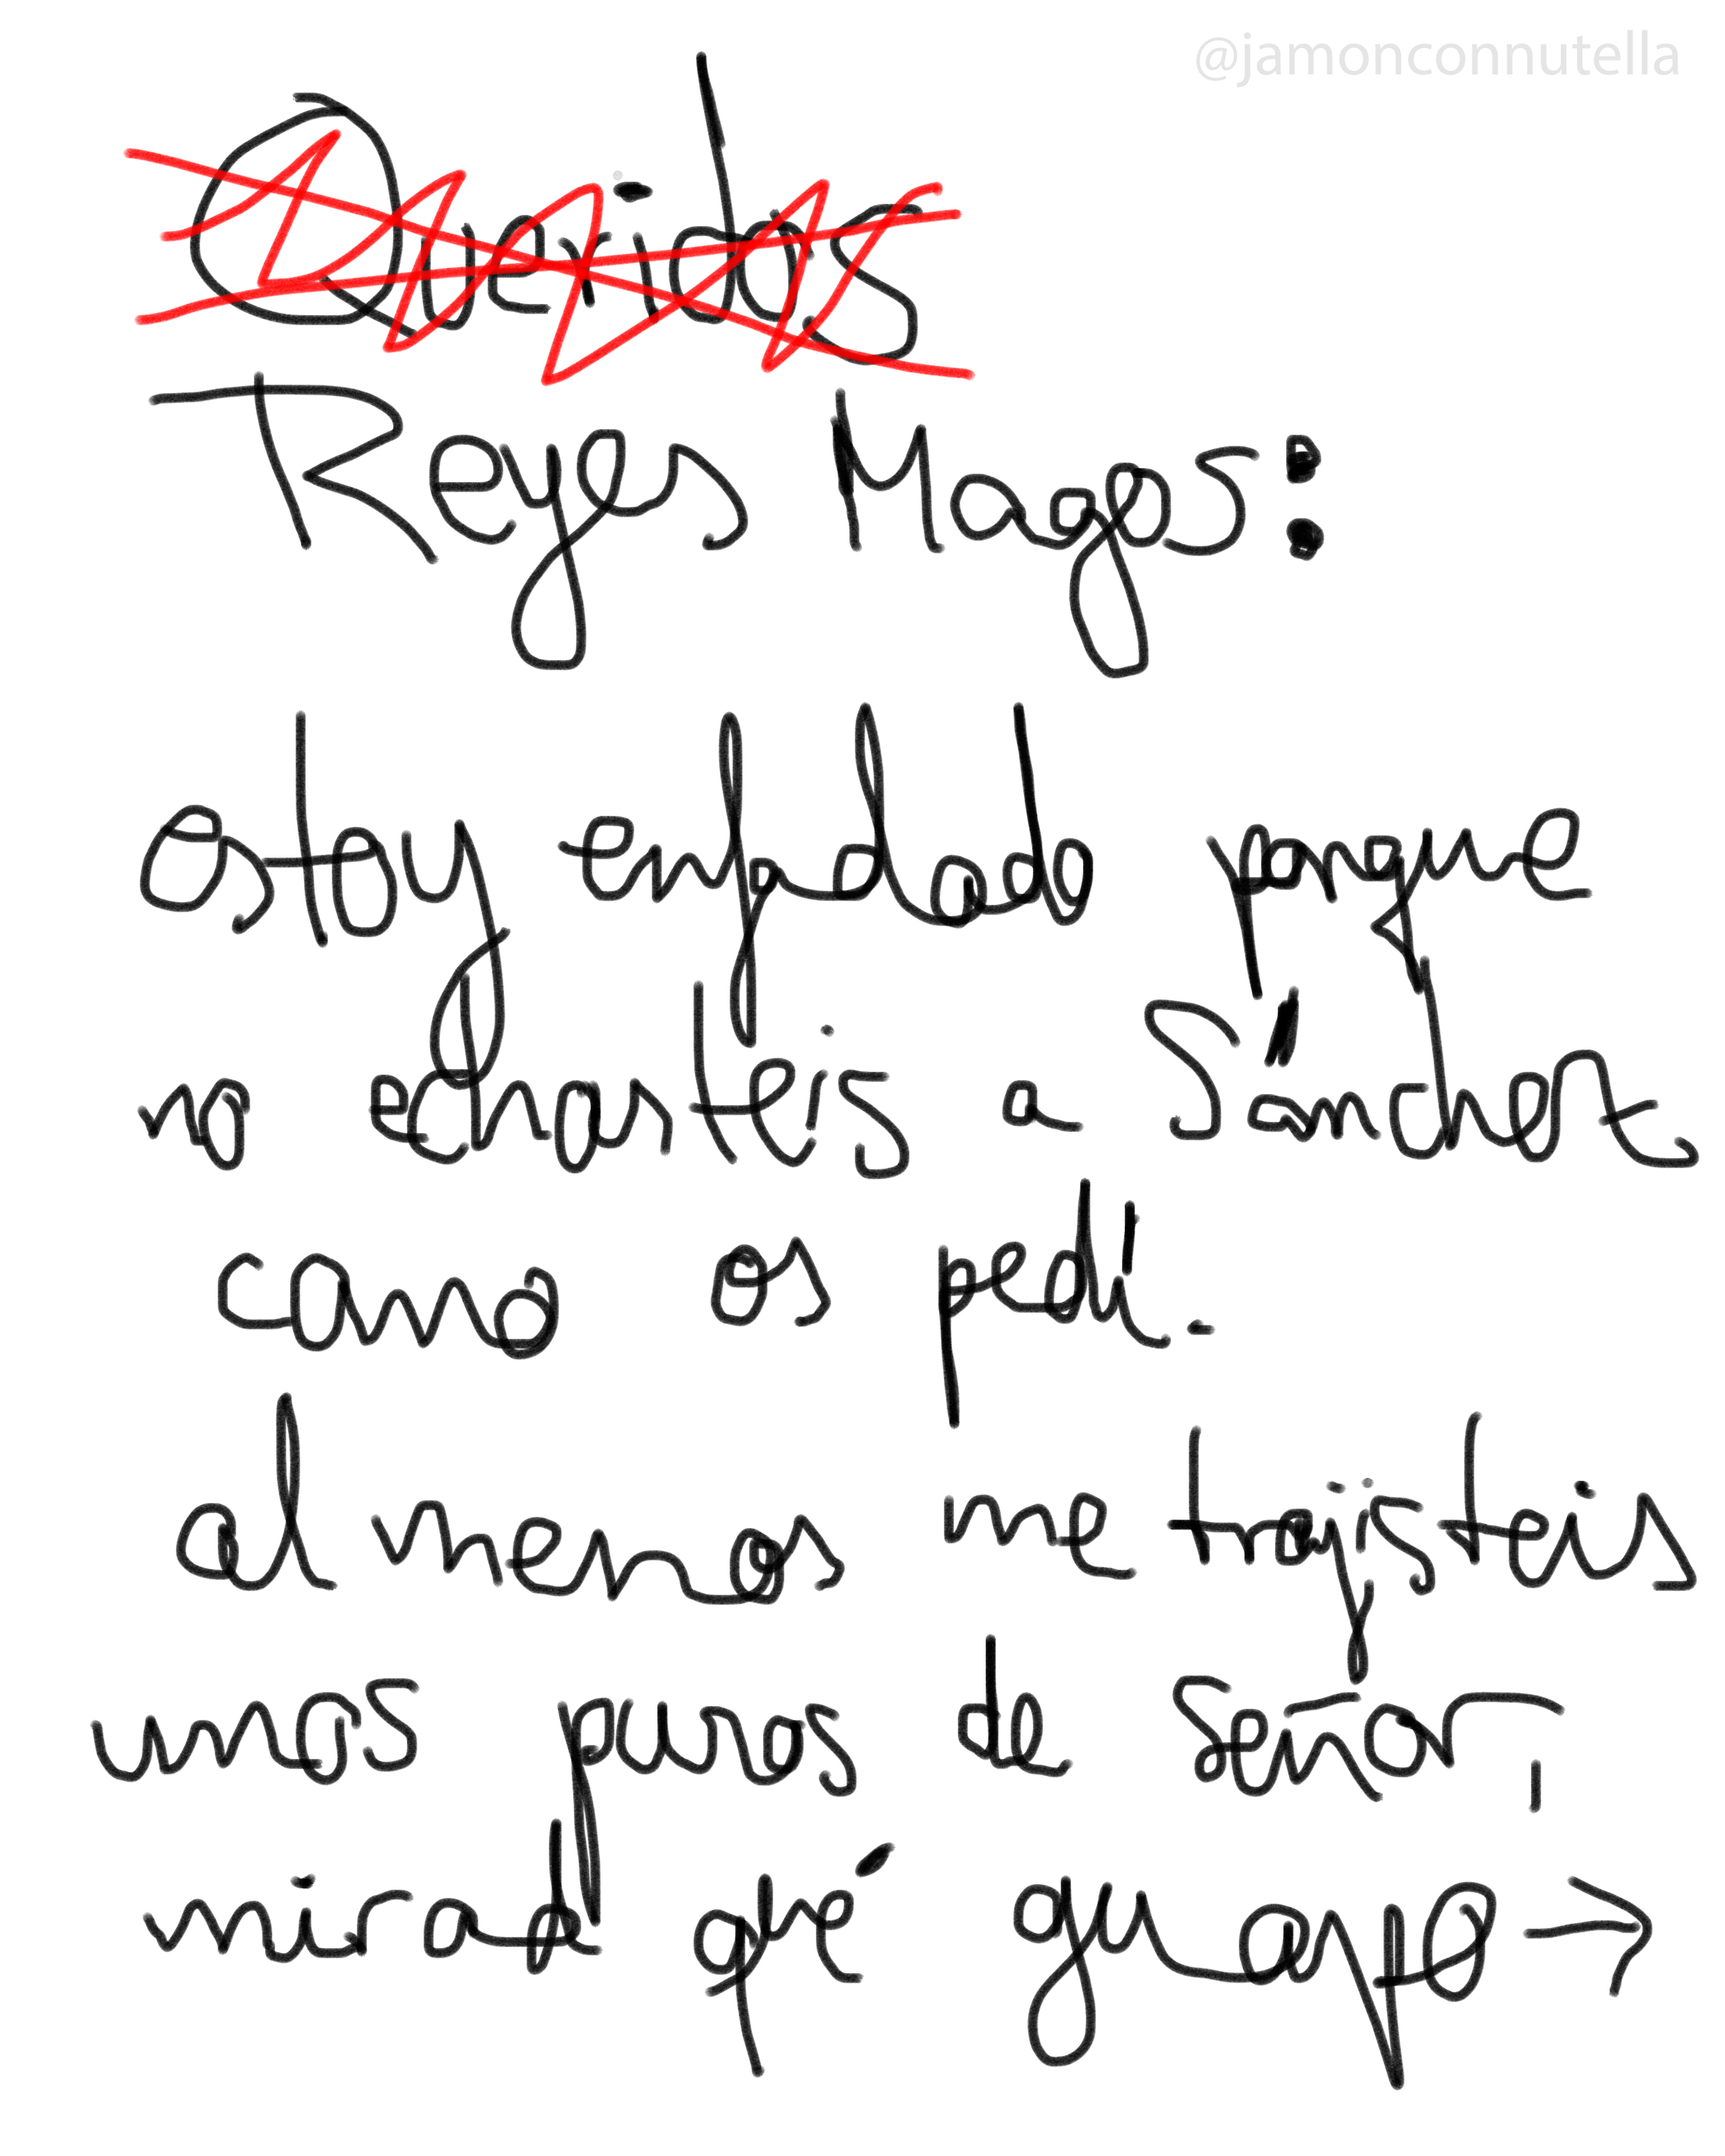 @jamonconnutella
Queridos
Reyes Magos:
estoy enfadado porque
no echasteis a Sánchez
como os pedí.
al menos me trajisteis
unos puros de señor,
mirad qué guapo →